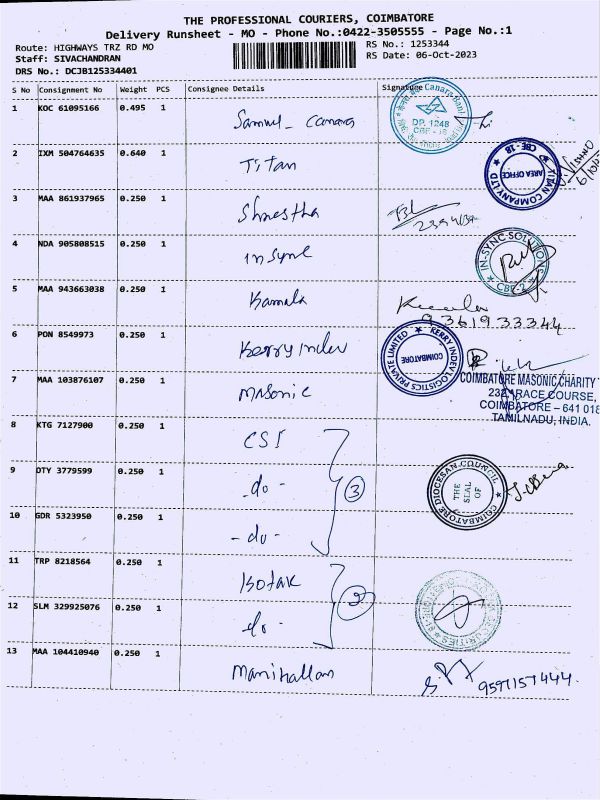 THE PROFESSIONAL COURIERS, COIMBATORE
Delivery Runsheet - MO - Phone No.:0422-3505555 - Page No.:1
Route: HIGHWAYS TRZ RD MO RS No.: 1253344
Staff: SIVACHANDRAN RS Date: 06-Oct-2023
DRS No.: DCJB125334401
S No Consignment No Weight PCS Consignee Details Signature
1 KOC 61095166 0.495 1 Canara
Canara Bank
DP. 1248
CBE - 18
2 IXM 504764635 0.640 1 Titan
TITAN COMPANY LTD
AREA OFFICE
CBE - 18
3 MAA 861937965 0.250 1 Shrestha
4 NDA 905808515 0.250 1 insync
IN-SYNC SOLUTIONS
CBE-2
5 MAA 943663038 0.250 1 Kamala
9361933344
6 PON 8549973 0.250 1 Kerry indev
KERRY INDEV LOGISTICS PRIVATE LIMITED
COIMBATORE
7 MAA 103876107 0.250 1 Masonic
COIMBATORE MASONIC CHARITY
232, RACE COURSE,
COIMBATORE – 641 018
TAMILNADU, INDIA.
8 KTG 7127900 0.250 1 CSI
9 OTY 3779599 0.250 1 -do- 3
COIMBATORE DIOCESAN COUNCIL
THE SEAL OF
10 GDR 5323950 0.250 1 -do-
11 TRP 8218564 0.250 1 Kotak
12 SLM 329925076 0.250 1 do- 2
SECURITIES
13 MAA 104410940 0.250 1